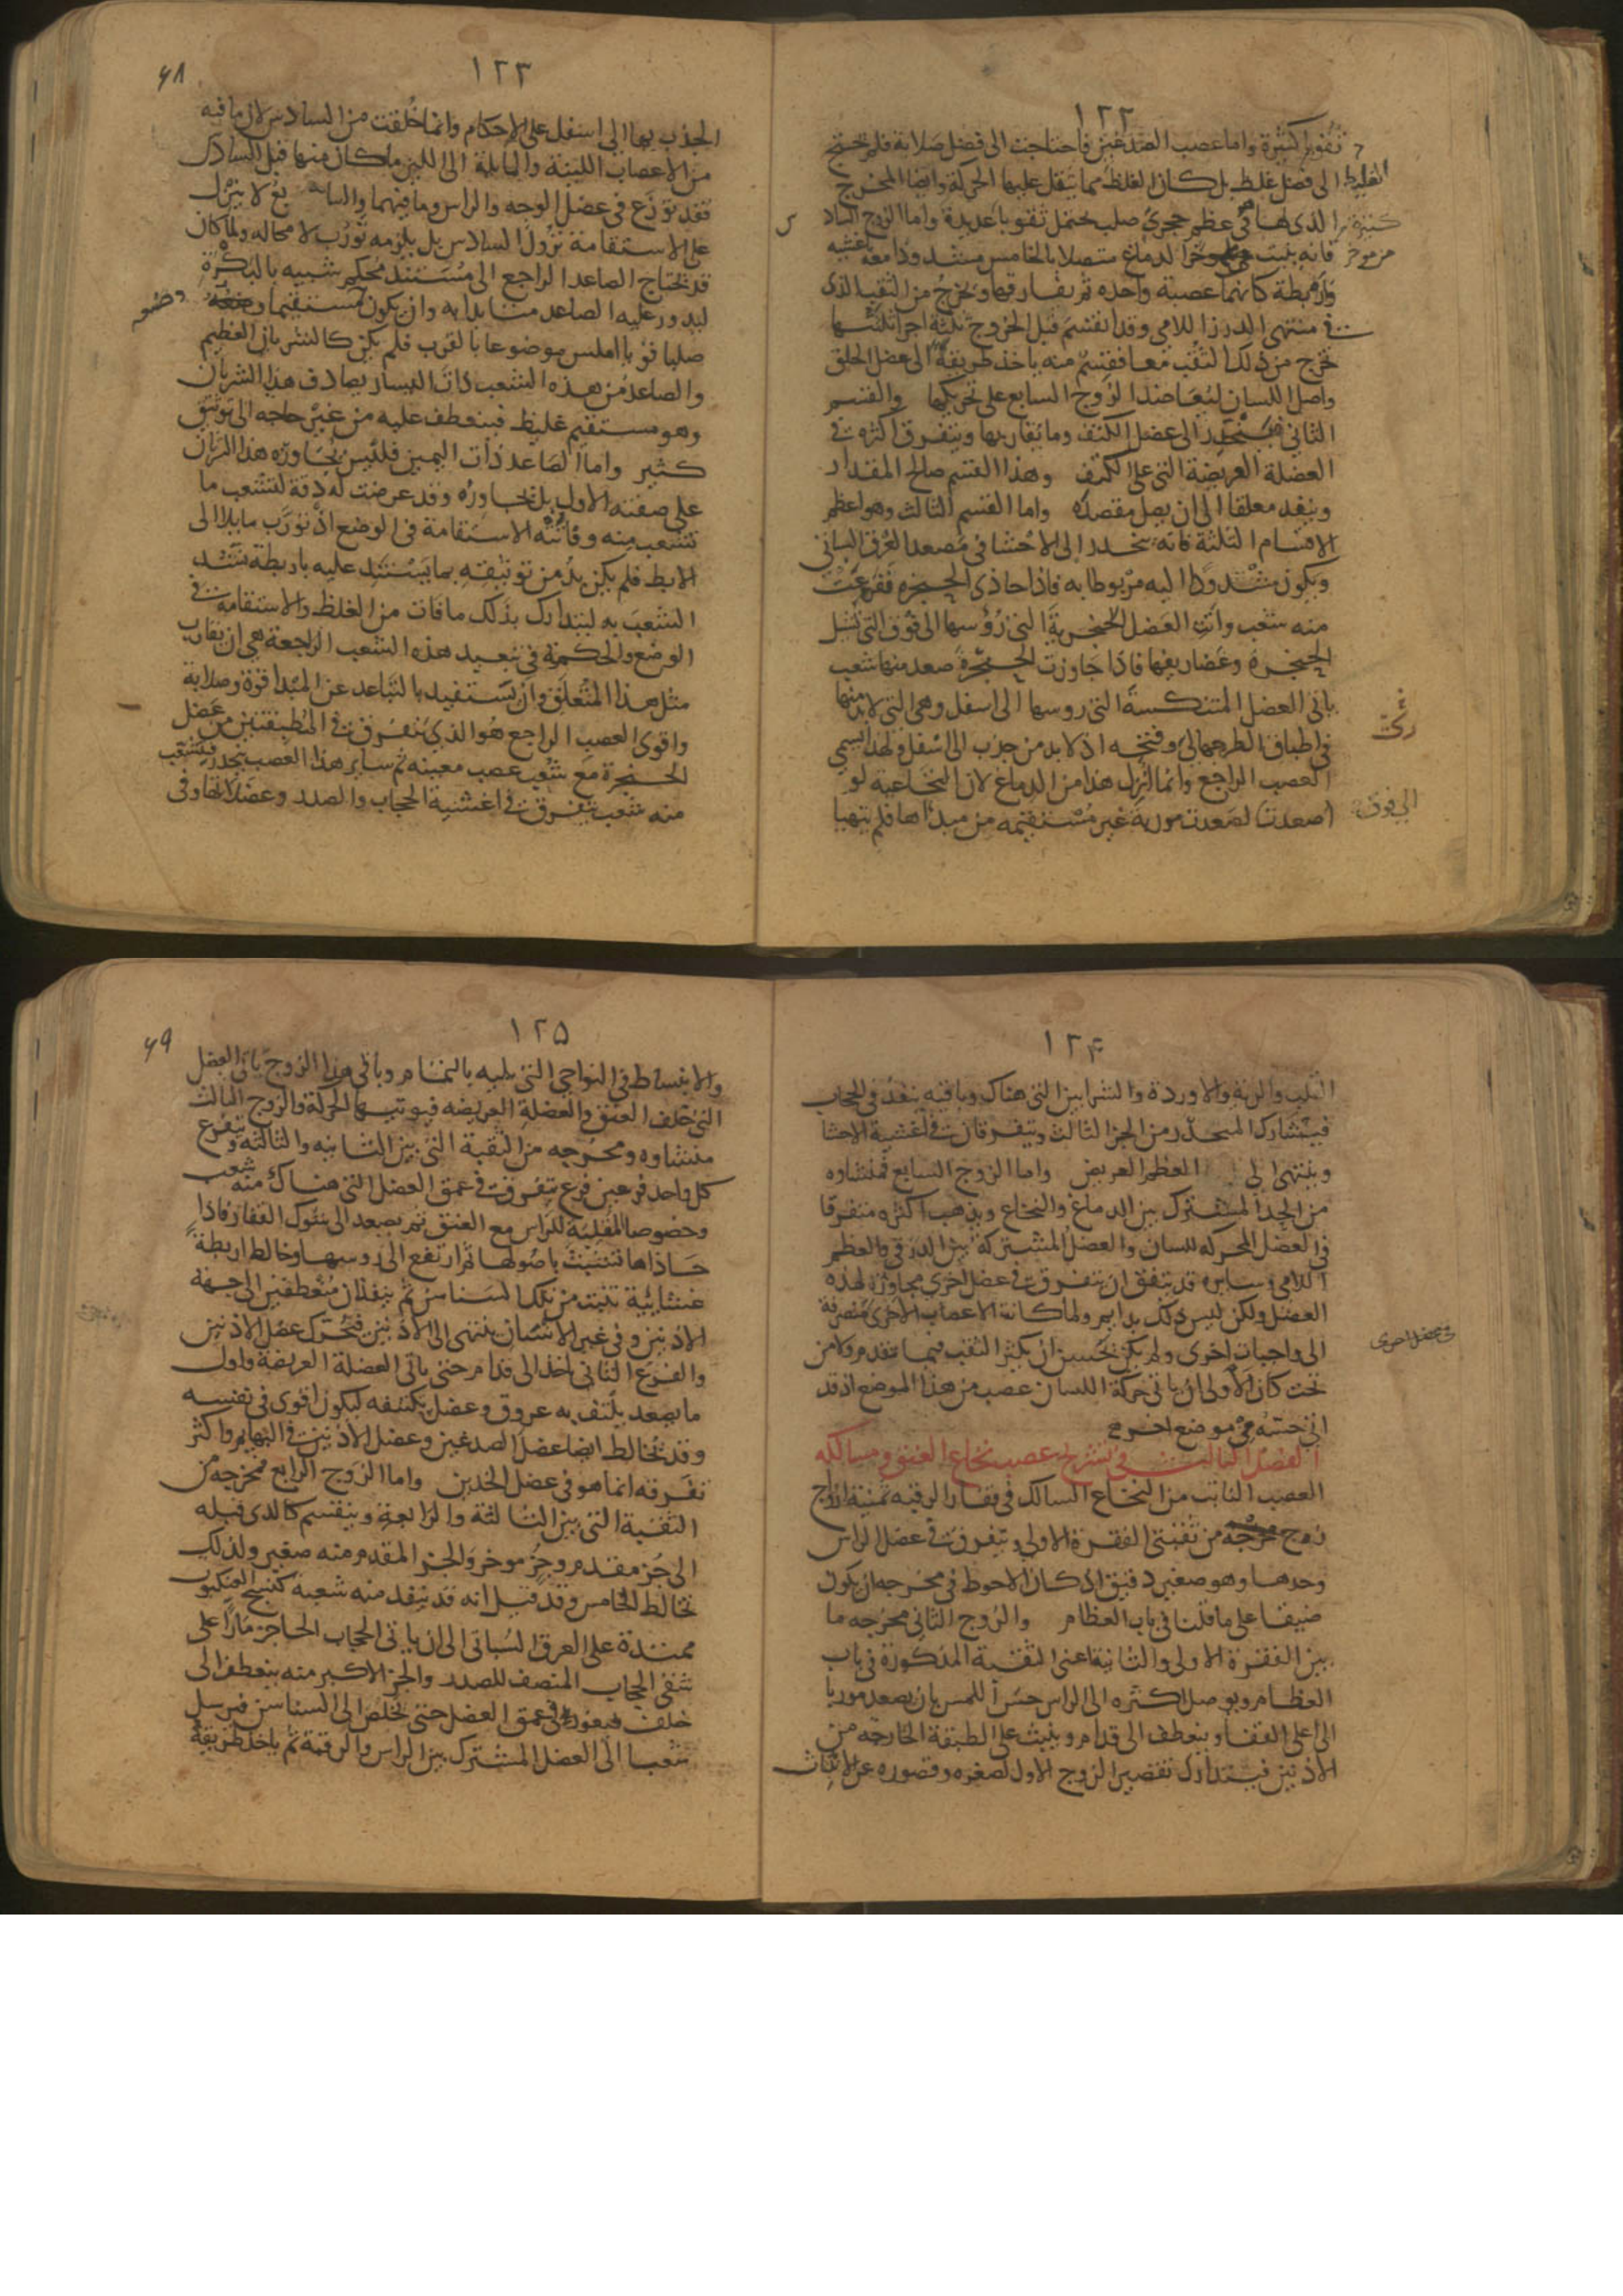 ١٢٢
ثقوبا كثيرة واما عصب الصدغين فاحتاجت الى فضل صلابة فلم تحتج
الى فضل غلظ بل كان الغلظ مما يثقل عليها الحركة وايضا المخرج
الذى لها فى عظم حجرى صلب يحتمل ثقوبا عديدة واما الزوج الساد
س
فانه ينبت من موخر الدماغ متصلا بالخامس مشدودا معه باغشيه
واربطة كانهما عصبة واحده ثم يفارقها ويخرج من الثقب الذى
فى منتهى الدرز اللامى وقد انقسم قبل الخروج ثلثة اجزا ثلثتها
تخرج من ذلك الثقب معا فقسم منه ياخذ طريقه الى عضل الحلق
واصل اللسان ليعاضد الزوج السابع على تحريكها والقسم
الثانى ينحدر الى عضل الكتف وما يقاربها ويتفرق اكثره فى
العضلة العريضة التى على الكتف وهذا القسم صالح المقدار
وينفد معلقا الى ان يصل مقصده واما القسم الثالث وهو اعظم
الاقسام الثلثة فانه ينحدر الى الاحشا فى مصعد العرق السباتى
ويكون مشدودا اليه مربوطا به فاذا حاذى الحنجره تفرعت
منه شعب واتت العضل الحنجرية التى رؤسها الى فوق التى تشيل
الحنجرة وغضاريفها فاذا جاوزت الحنجرة صعد منها شعب
ياتى العضل المتنكسة التى روسها الى اسفل وهى التى لا بد منها
فى اطباق الطرجهالى وفتحه اذ لا بد من جذب الى اسفل ولهذا يسمى
العصب الراجع وانما انزل هذا من الدماغ لان النخاعية لو
اصعدت لصعدت موربة غير مستقيمه من مبداها فلم يتهيا
الغليظ
كثيرة
من موخر
الى فوق
١٢٣
٦٨
الجذب بها الى اسفل على الاحكام وانما خلقت من السادس لان ما فيه
من الاعصاب اللينة والمايلة الى اللين ما كان منها قبل السادس
فقد توزع فى عضل الوجه والراس وما فيهما والسابع لا ينزل
على الاستقامة نزول السادس بل يلزمه تورب لا محاله ولما كان
قد يحتاج الصاعد الراجع الى مستند محكم شبيه بالبكرة
ليدور عليه الصاعد متايدا به وان يكون مستقيما وضعه
صلبا قويا املس موضوعا بالقرب فلم يكن كالشريان العظيم
والصاعد من هذه الشعب ذات اليسار يصادف هذا الشريان
وهو مستقيم غليظ فينعطف عليه من غير حاجه الى توثيق
كثير واما الصاعد ذات اليمين فليس يجاوره هذا الشريان
على صفته الاول بل يجاوره وقد عرضت له دقة لتشعب ما
تشعب منه وفاتته الاستقامة فى الوضع اذ تورب مايلا الى
الابط فلم يكن بد من توثيقه بما يستند عليه باربطة تشد
الشعب به ليتدارك بذلك ما فات من الغلظ والاستقامة فى
الوضع والحكمة فى تبعيد هذه الشعب الراجعة هى ان يقارب
مثل هذا المتعلق وان يستفيد بالتباعد عن المبدا قوة وصلابة
واقوى العصب الراجع هو الذى يتفرق فى الطبقتين من عضل
الحنجرة مع شعب عصب معينه ثم ساير هذا العصب ينحدر فيتشعب
منه شعب يتفرق فى اغشية الحجاب والصدر وعضلاتها وفى
١٢۴
القلب والرية والاوردة والشرايين التى هناك وباقيه ينفذ فى الحجاب
فيشارك المنحدر من الجز الثالث ويتفرقان فى اغشية الاحشا
وينتهى الى العظم العريض واما الزوج السابع فمنشاوه
من الحد المشترك بين الدماغ والنخاع ويذهب اكثره متفرقا
فى العضل المحركه للسان والعضل المشتركة بين الدرقى والعظم
اللامى وسايره قد يتفق ان يتفرق فى عضل اخرى مجاورة لهذه
العضل ولكن ليس ذلك بدايم ولما كانت الاعصاب الاخرى منصرفة
الى واجبات اخرى ولم يكن يحسن ان يكثر الثقب فيما تقدم ولا من
تحت كان الاولى ان ياتى حركة اللسان عصب من هذا الموضع اذ قد
اتى حسه من موضع اخر
الفصل الثالث فى تشريح عصب نخاع العنق ومسالكه
العصب النابت من النخاع السالك فى فقار الرقبه ثمنية ازواج
زوج مخرجه من ثقبتى الفقرة الاولى ويتفرق فى عضل الراس
وحدها وهو صغير دقيق اذ كان الاحوط فى مخرجه ان يكون
ضيقا على ما قلنا فى باب العظام والزوج الثانى مخرجه ما
بين الفقرة الاولى والثانية اعنى الثقبة المذكورة فى باب
العظام ويوصل اكثره الى الراس حس اللمس بان يصعد موربا
الى اعلى الفقا وينعطف الى قدام وينبث على الطبقة الخارجه من
الاذنين فيتدارك تقصير الزوج الاول لصغره وقصوره عن الانبثاث
١٢۵
٦٩
والانبساط فى النواحى التى يليه بالتمام وباقى هذا الزوج ياتى العضل
التى خلف العنق والعضلة العريضه فيوتيها الحركة والزوج الثالث
منشاوه ومخرجه من الثقبة التى بين الثانيه والثالثة ويتفرع
كل واحد فرعين فرع يتفرق فى عمق العضل التى هناك منه شعب
وخصوصا المقلبة للراس مع العنق ثم يصعد الى شوك الفقار فاذا
حاذاها تشبث باصولها ثم ارتفع الى روسها وخالطه اربطة
غشائية تنبت من تلك السناسن ثم ينفذان منعطفين الى جهة
الاذنين وفى غير الانسان ينتهى الى الاذنين فيحرك عضل الاذنين
والفرع الثانى ياخذ الى قدام حتى ياتى العضلة العريضة واول
ما يصعد يلتف به عروق وعضل يكتنفه ليكون اقوى فى نفسه
وقد تخالط ايضا عضل الصدغين وعضل الاذنين فى البهايم واكثر
تفرقه انما هو فى عضل الخدين واما الزوج الرابع فمخرجه من
الثقبة التى بين الثالثة والرابعة وينقسم كالذى قبله
الى جز مقدم وجز موخر والجز المقدم منه صغير ولذلك
تخالط الخامس وقد قيل انه قد ينفذ منه شعبة كنسج العنكبوت
ممتدة على العرق السباتى الى ان ياتى الحجاب الحاجز مارا على
شقى الحجاب المنصف للصدر والجز الاكبر منه ينعطف الى
خلف فيغور فى عمق العضل حتى تخلص الى السناسن فيرسل
شعبا الى العضل المشترك بين الراس والرقبة ثم ياخذ طريقه